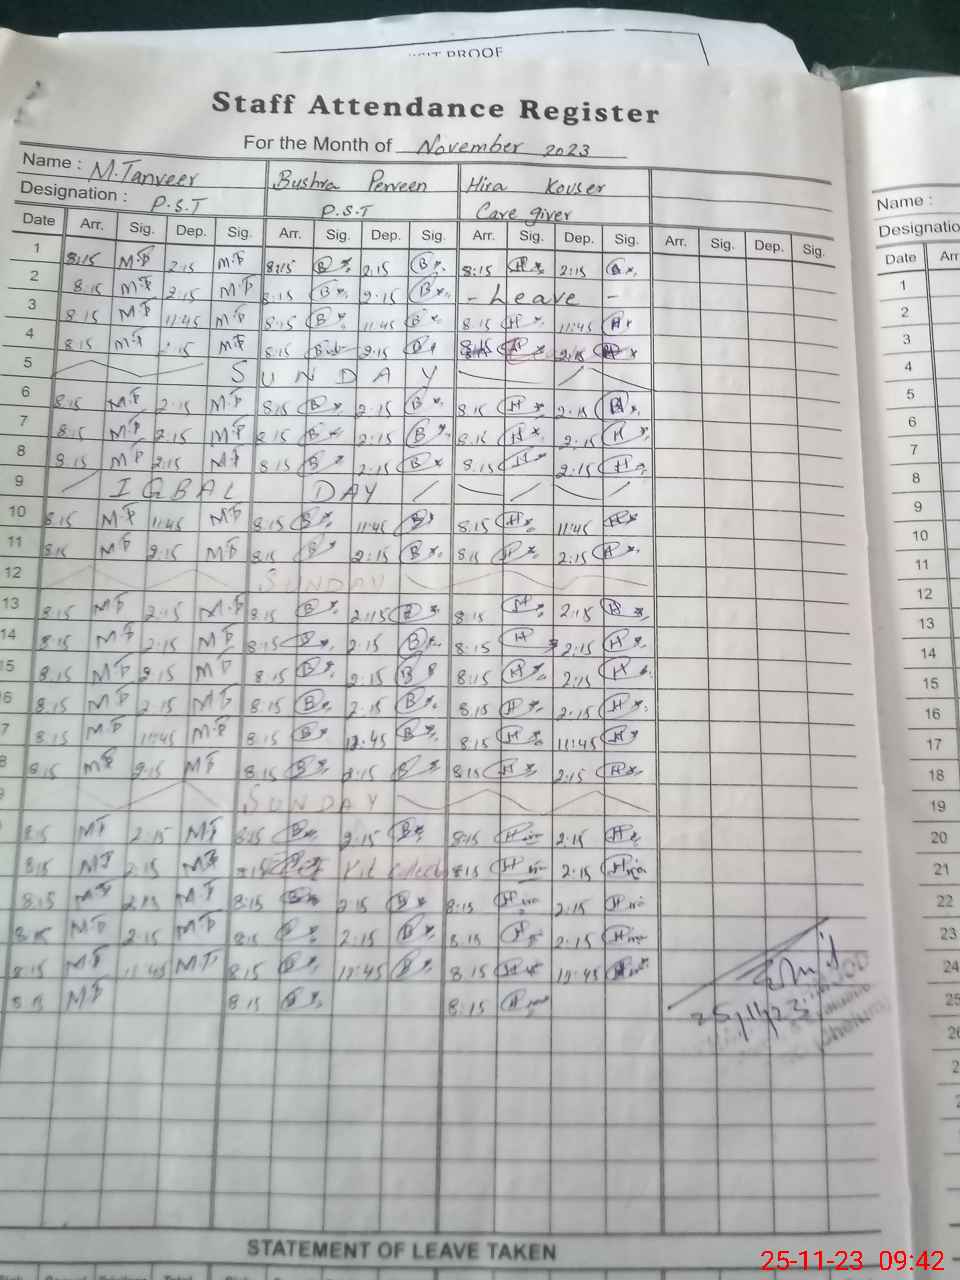 Staff Attendance Register
For the Month of November 2023
Name : M.Tanveer Bushra Perveen Hira Kouser
Designation : P.S.T P.S.T Care giver
Date Arr. Sig. Dep. Sig. Arr. Sig. Dep. Sig. Arr. Sig. Dep. Sig. Arr. Sig. Dep. Sig.
1 8:15 M.T 2:15 M.T 8:15 B 2:15 B 8:15 H 2:15
2 8:15 M.T 2:15 M.T 8:15 B 2:15 B - Leave -
3 8:15 M.T 11:45 M.T 8:15 B 11:45 B 8:15 H 11:45 H
4 8:15 M.T :15 M.T 8:15 B 2:15 8:15 H 2:15 H
5 SUNDAY
6 8:15 M.T 2:15 M.T 8:15 B 2:15 B 8:15 H 2:15 H
7 8:15 M.T 2:15 M.T 8:15 B 2:15 B 8:15 H 2:15 H
8 8:15 MT 2:15 MT 8:15 B 2:15 B 8:15 H 2:15 H
9 IQBAL DAY
10 8:15 M.T 11:45 MT 8:15 B 11:45 B 8:15 H 11:45 H
11 8:15 MT 2:15 MT 8:15 B 2:15 B 8:15 H 2:15 H
12 SUNDAY
13 8:15 MT 2:15 M.T 8:15 B 2:15 B 8:15 H 2:15 H
14 8:15 MT 2:15 MT 8:15 B 2:15 B 8:15 H 2:15 H
5 8:15 MT 2:15 MT 8:15 B 2:15 B 8:15 H 2:15 H
6 8:15 MT 2:15 MT 8:15 B 2:15 B 8:15 H 2:15 H
7 8:15 M.T 11:45 M.T 8:15 B 12:45 B 8:15 H 11:45 H
8 8:15 MT 2:15 MT 8:15 B 2:15 B 8:15 H 2:15 H
SUNDAY
8:15 MT 2:15 MT 8:15 B 2:15 B 8:15 H 2:15 H
8:15 MT 2:15 MT 8:15 H 2:15 H
8:15 MT 2:15 MT 8:15 B 2:15 B 8:15 H 2:15 H
8:15 MT 2:15 MT 8:15 B 2:15 B 8:15 H 2:15 H
8:15 MT 11:45 MT 8:15 B 11:45 B 8:15 H 11:45 H
MT 8:15 B 8:15 H
25/11/23
STATEMENT OF LEAVE TAKEN
Name :
Date
1
2
3
4
5
6
7
8
9
10
11
12
13
14
15
16
17
18
19
20
21
22
23
24
25
25-11-23 09:42